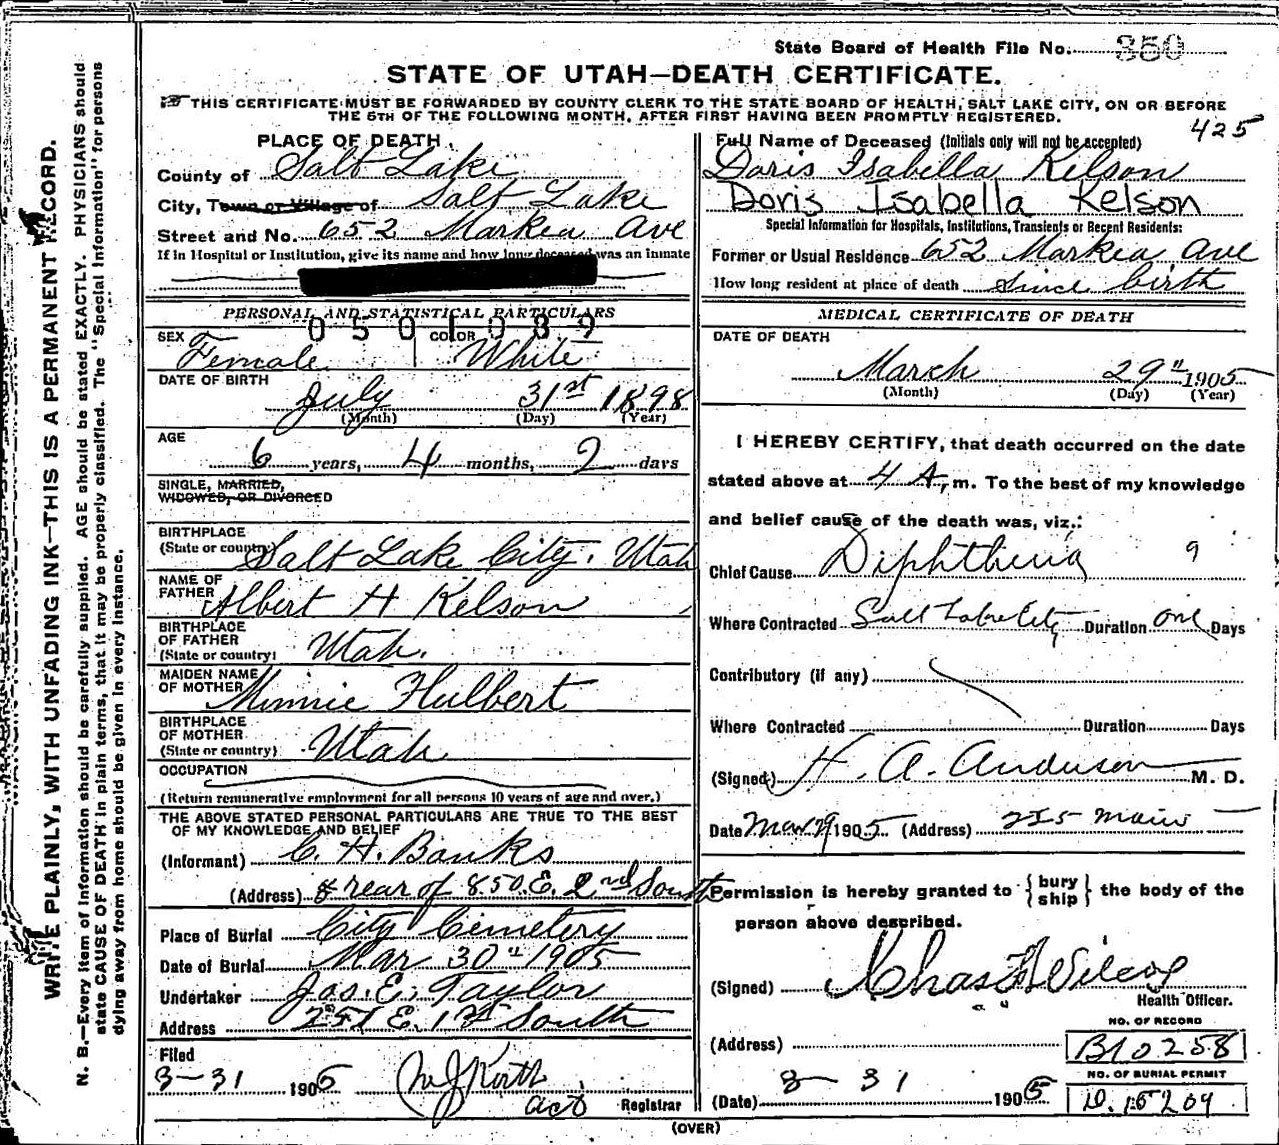 State Board of Health File No. 350
STATE OF UTAH—DEATH CERTIFICATE.
THIS CERTIFICATE MUST BE FORWARDED BY COUNTY CLERK TO THE STATE BOARD OF HEALTH, SALT LAKE CITY, ON OR BEFORE
THE 5TH OF THE FOLLOWING MONTH, AFTER FIRST HAVING BEEN PROMPTLY REGISTERED.
425
WRITE PLAINLY, WITH UNFADING INK—THIS IS A PERMANENT RECORD.
N. B.—Every item of information should be carefully supplied. AGE should be stated EXACTLY. PHYSICIANS should
state CAUSE OF DEATH in plain terms, that it may be properly classified. The "Special Information" for persons
dying away from home should be given in every instance.
PLACE OF DEATH
County of Salt Lake
City, Town or Village of Salt Lake
Street and No. 652 Markea Ave
If in Hospital or Institution, give its name and how long deceased was an inmate
PERSONAL AND STATISTICAL PARTICULARS
0501089
SEX Female COLOR White
DATE OF BIRTH
July 31st 1898
(Month) (Day) (Year)
AGE
6 years, 4 months, 2 days
SINGLE, MARRIED,
WIDOWED, OR DIVORCED
BIRTHPLACE
(State or country) Salt Lake City, Utah
NAME OF
FATHER Albert H Kelson
BIRTHPLACE
OF FATHER
(State or country) Utah.
MAIDEN NAME
OF MOTHER Minnie Hulbert
BIRTHPLACE
OF MOTHER
(State or country) Utah
OCCUPATION
(Return remunerative employment for all persons 10 years of age and over.)
THE ABOVE STATED PERSONAL PARTICULARS ARE TRUE TO THE BEST
OF MY KNOWLEDGE AND BELIEF
(Informant) C. H. Banks
(Address) rear of 850 E. 2nd South
Place of Burial City Cemetery
Date of Burial Mar 30" 1905
Undertaker Jos. E. Taylor
Address 251 E. 1st South
Filed
3-31 1905
act Registrar
Full Name of Deceased (Initials only will not be accepted)
Doris Isabella Kelson
Doris Isabella Kelson
Special Information for Hospitals, Institutions, Transients or Recent Residents:
Former or Usual Residence 652 Markea Ave
How long resident at place of death since birth
MEDICAL CERTIFICATE OF DEATH
DATE OF DEATH
March 29" 1905
(Month) (Day) (Year)
I HEREBY CERTIFY, that death occurred on the date
stated above at 4 A, m. To the best of my knowledge
and belief cause of the death was, viz.:
Chief Cause Diphtheria 9
Where Contracted Salt Lake City Duration one Days
Contributory (if any)
Where Contracted Duration Days
(Signed) H. A. Anderson M. D.
Date Mar 29 1905 (Address) 225 Main
Permission is hereby granted to { bury
ship } the body of the
person above described.
(Signed) Chas F Wilcox
Health Officer.
NO. OF RECORD
(Address) B10258
NO. OF BURIAL PERMIT
(Date) 3-31 1905 D. 15209
(OVER)